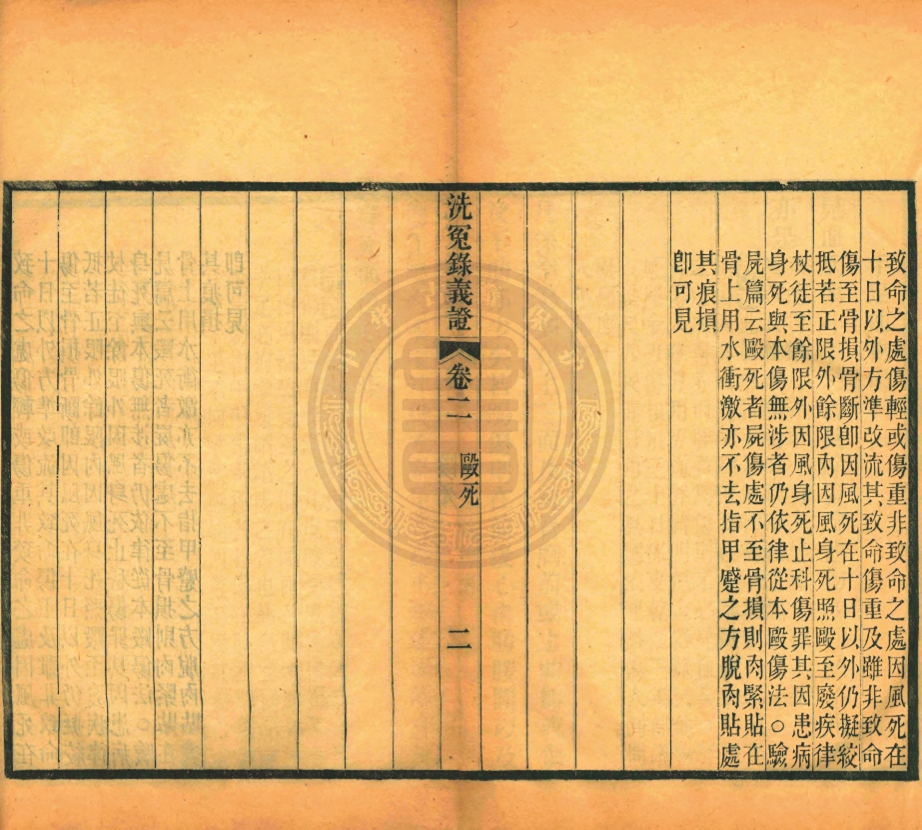 致命之處傷輕或傷重非致命之處因風死在
十日以外方準改流其致命傷重及雖非致命
傷至骨損骨斷卽因風死在十日以外仍擬絞
抵若正限外餘限內因風身死照毆至廢疾律
杖徒至餘限外因風身死止科傷罪其因患病
身死與本傷無涉者仍依律從本毆傷法○驗
屍篇云毆死者屍傷處不至骨損則肉緊貼在
骨上用水衝激亦不去指甲蹙之方脫肉貼處
其痕損
卽可見
洗冤錄義證
卷二
毆死
二